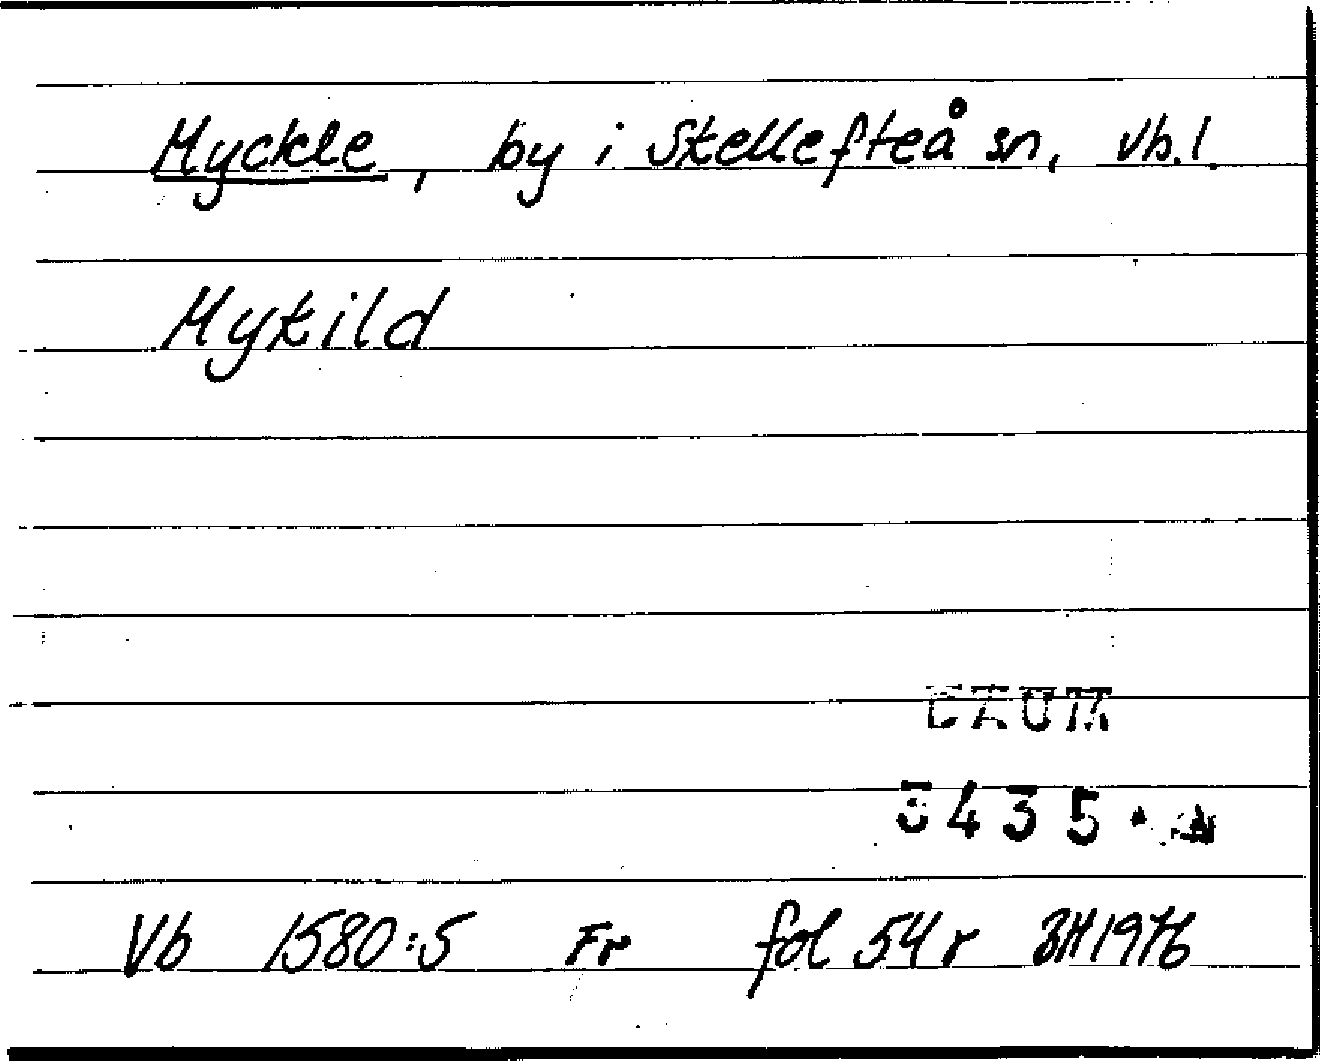 Myckle, by i Skellefteå sn, Vb.l.
Mykild
DAUM
3435
Vb 1580:5 Fr fol 54 r BH 1976